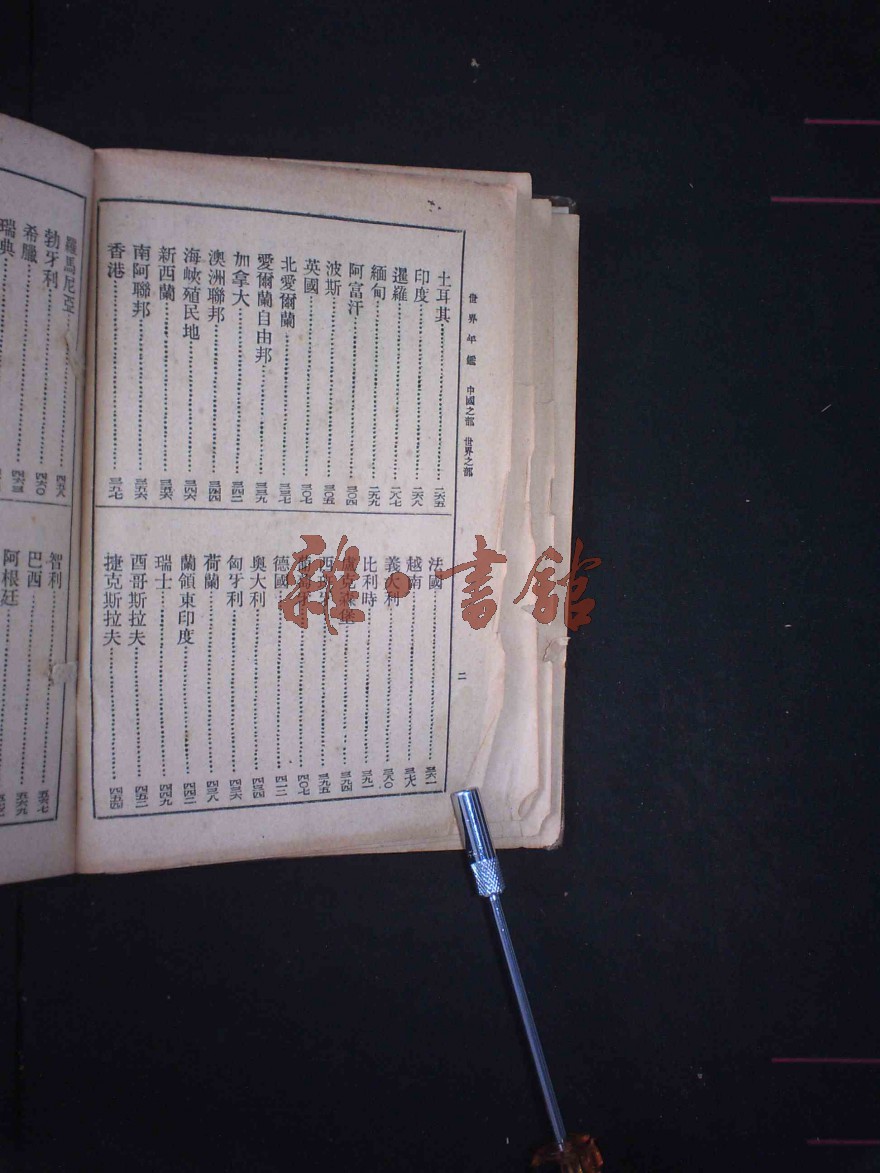 世界年鑑 中國之部 世界之部
二
土耳其 二六五
印度 二六八
暹羅 二八七
緬甸 二九九
阿富汗 三〇四
波斯 三〇五
英國 三〇七
北愛爾蘭 三三七
愛爾蘭自由邦 三三九
加拿大 三四二
澳洲聯邦 三四四
海峽殖民地 三四六
新西蘭 三五六
南阿聯邦 三五六
香港 三五七
法國 三六一
越南 三七八
義大利 三八〇
比利時 三九一
盧克森堡 三九四
三九五
葡萄牙 四〇七
德國 四一二
奧大利 四三四
匈牙利 四三六
荷蘭 四三八
蘭領東印度 四四二
瑞士 四四九
酉哥斯拉夫 四五二
捷克斯拉夫 四五四
羅馬尼亞 四五八
勃牙利 四六〇
希臘 四六三
瑞典
智利 五六七
巴西 五六九
阿根廷
雜·書館